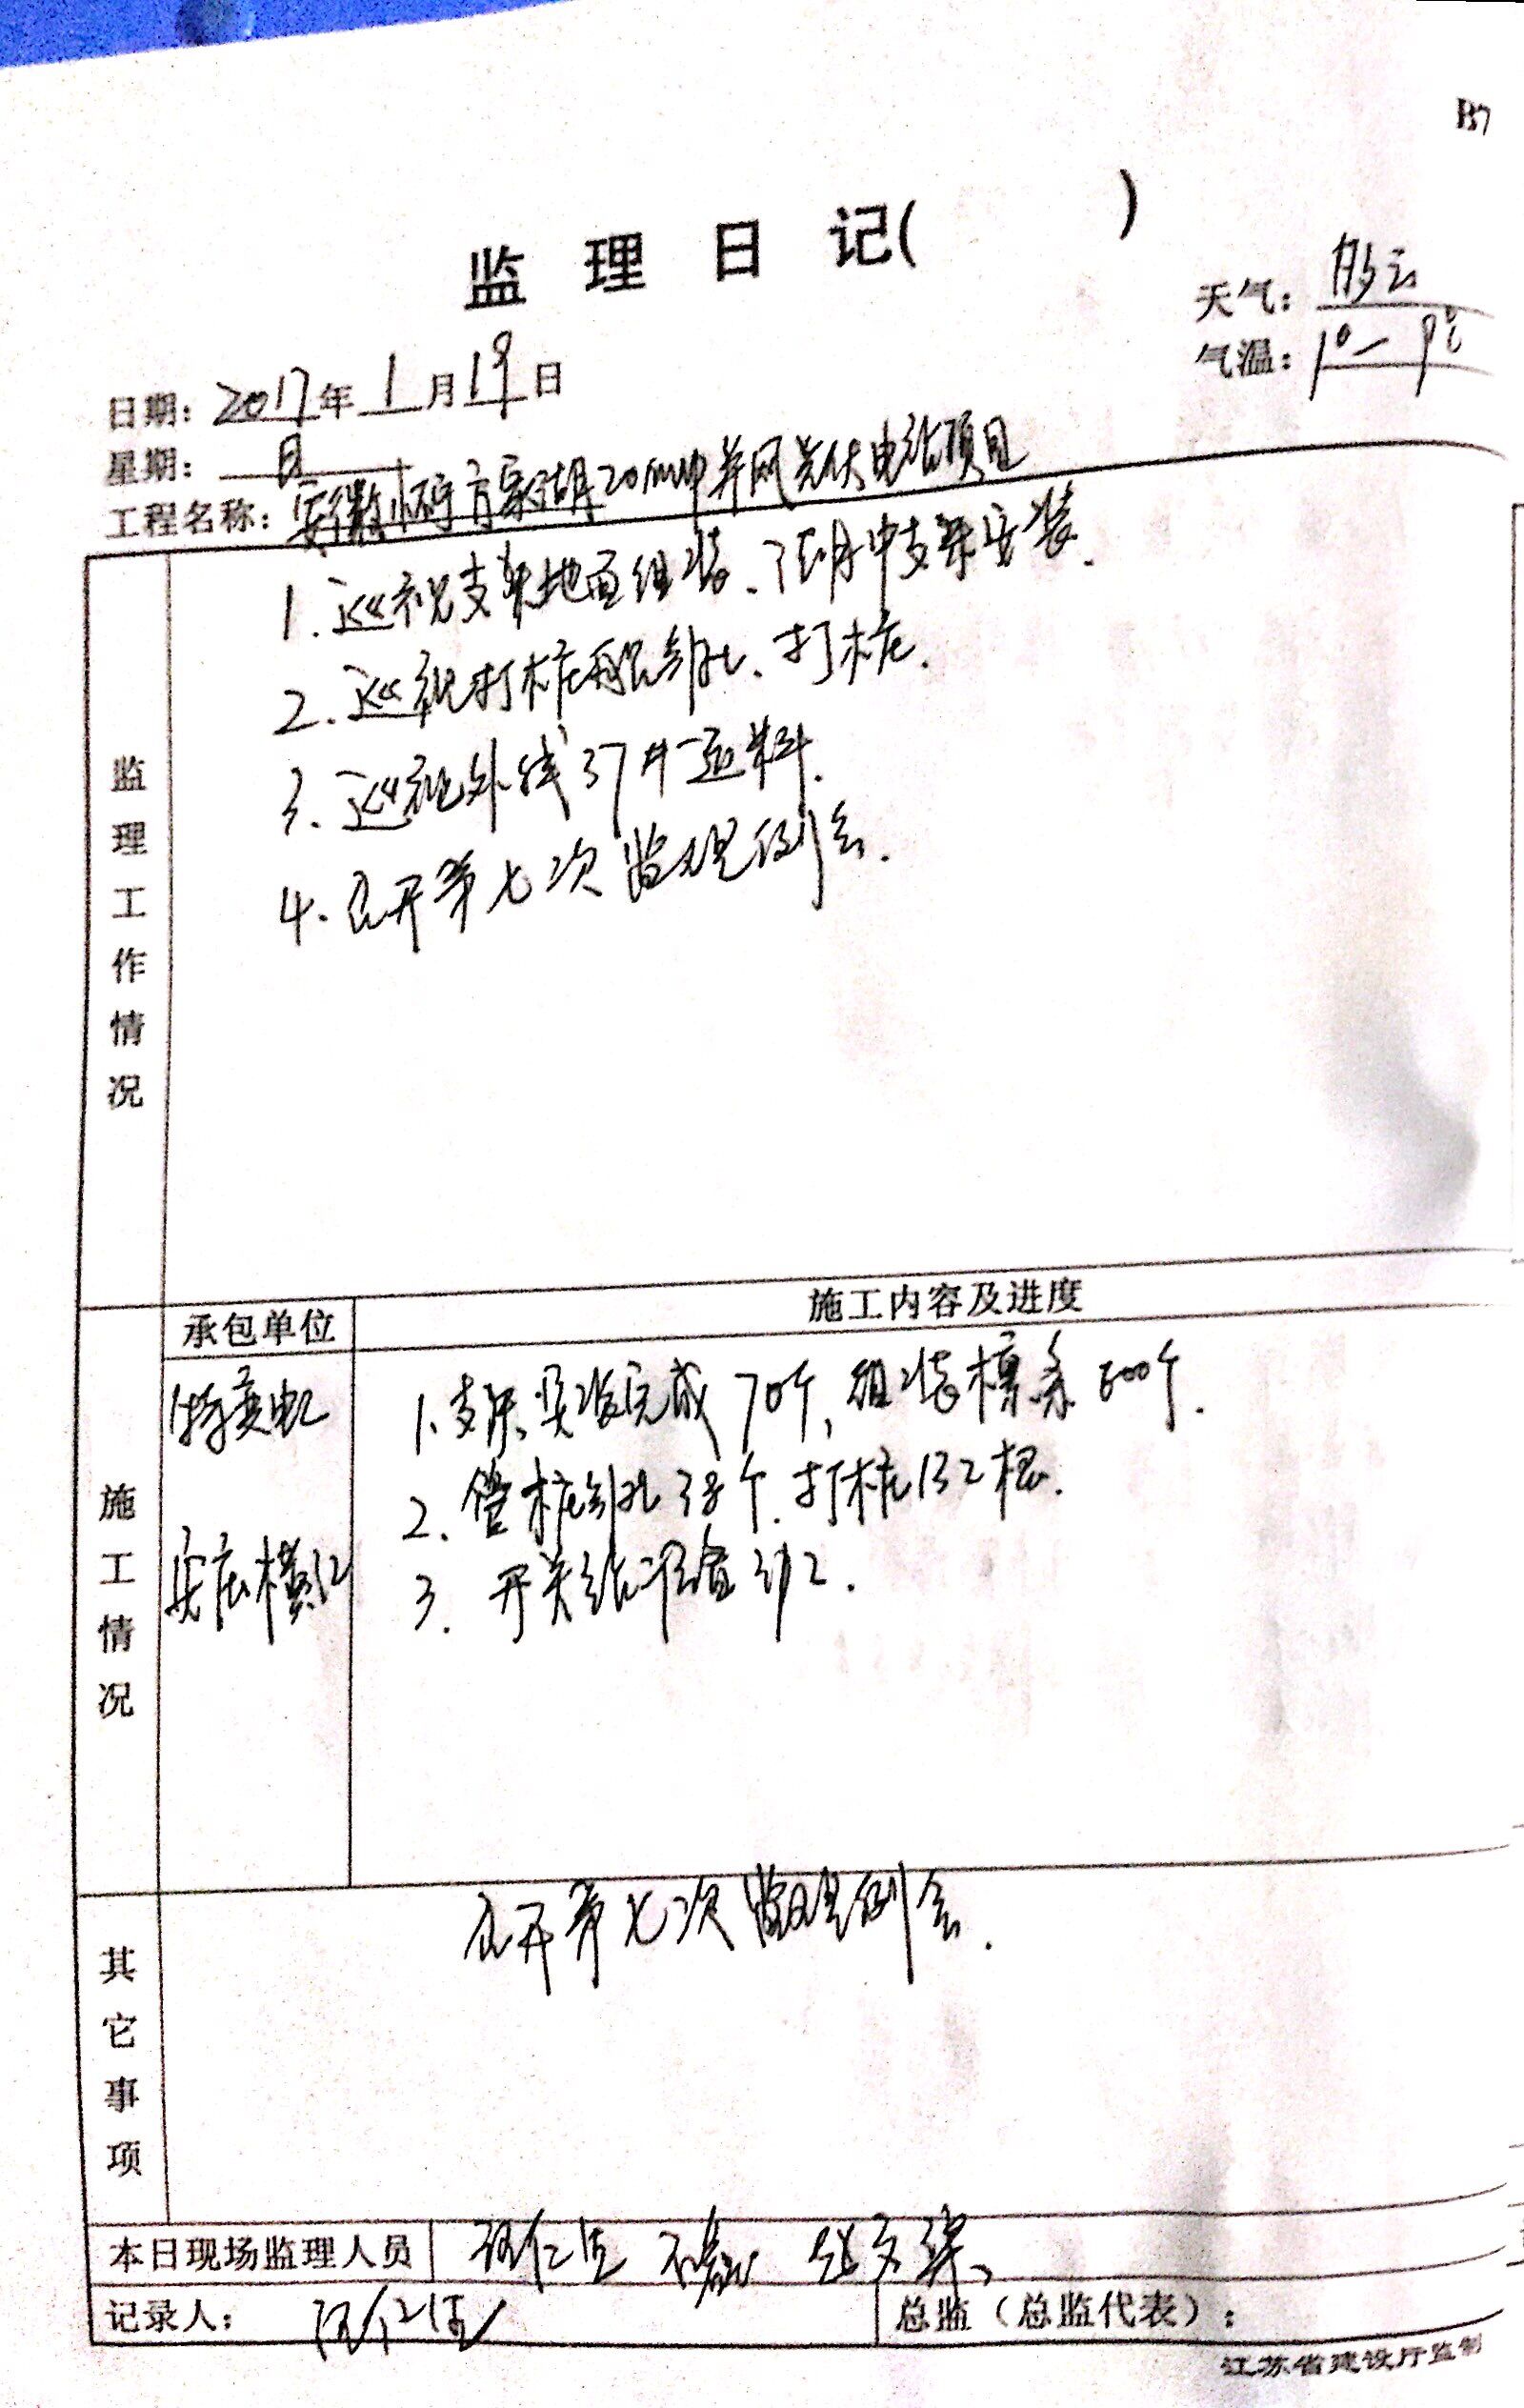 B7
监理日记( )
天气: 多云
气温: 1°—9℃
日期: 2017年1月19日
星期: 日
工程名称: 安徽怀宁方家湖20MWP并网光伏电站项目
监理工作情况
1. 巡视支架地面组装、支架安装.
2. 巡视打桩引孔、打桩.
3. 巡视外线37#运料.
4. 召开第七次监理例会.
承包单位
施工内容及进度
施工情况
特变电工
安庆横江
1. 支架安装完成70个, 组装檩条600个.
2. 管桩引孔38个. 打桩132根.
3. 开关站准备
其它事项
召开第七次监理例会.
本日现场监理人员
记录人:
总监（总监代表）:
江苏省建设厅监制